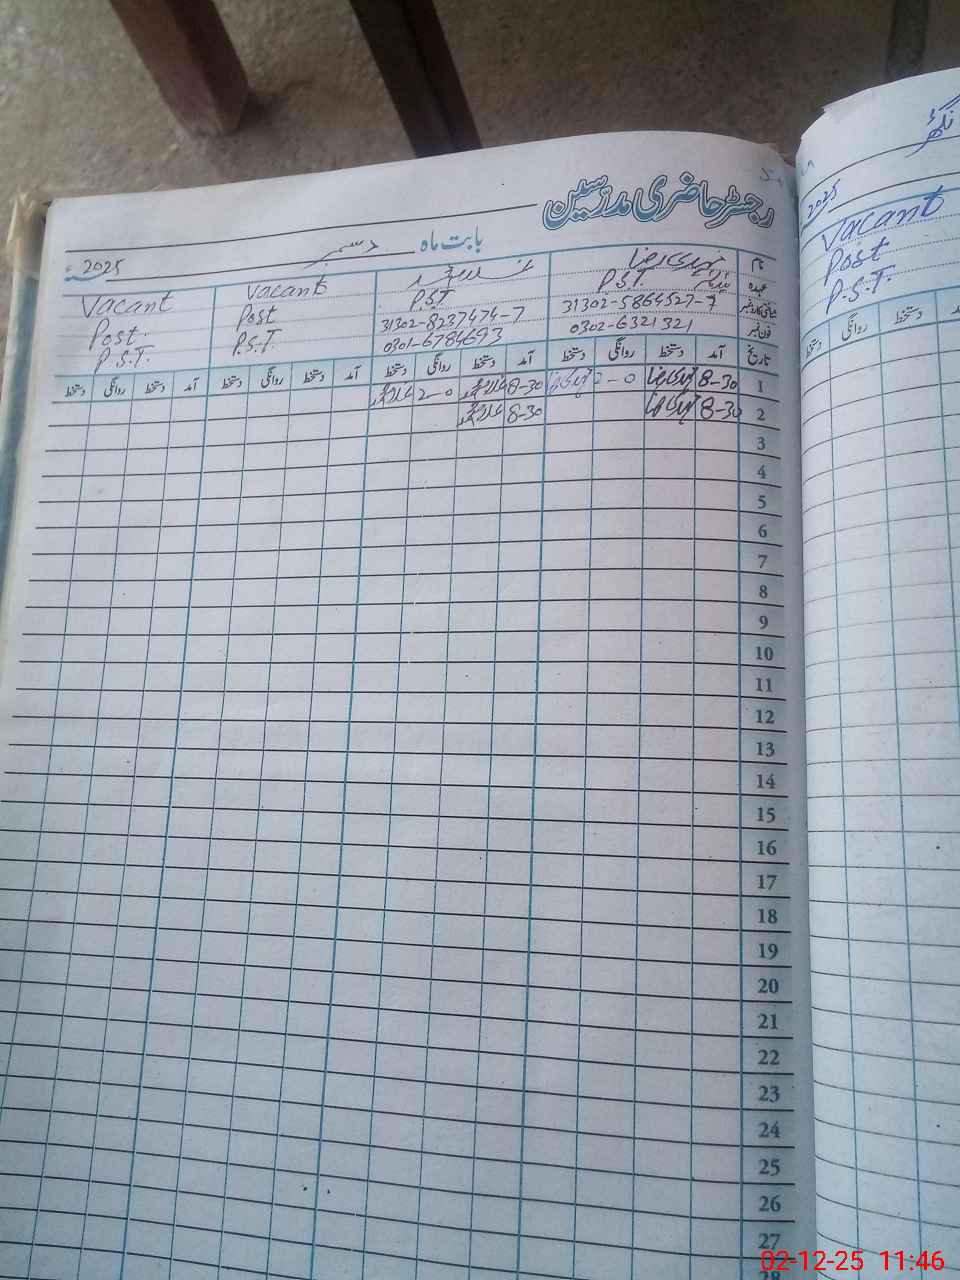 رجسٹر حاضری مدرسین
بابت ماہ دسمبر 2025ء
نام
عہدہ P.S.T. P.S.T Vacant Post P.S.T. Vacant Post. P.S.T.
شناختی کارڈ نمبر 31302-5864527-9 31302-8237474-7
فون نمبر 0302-6321321 0301-6784693
تاریخ آمد دستخط روانگی دستخط آمد دستخط روانگی دستخط آمد دستخط روانگی دستخط آمد دستخط روانگی دستخط
1 8-30 2-0 8-30 2-0
2 8-30 8-30
3
4
5
6
7
8
9
10
11
12
13
14
15
16
17
18
19
20
21
22
23
24
25
26
27
28
2025
Vacant
Post
P.S.T.
روانگی دستخط
02-12-25 11:46